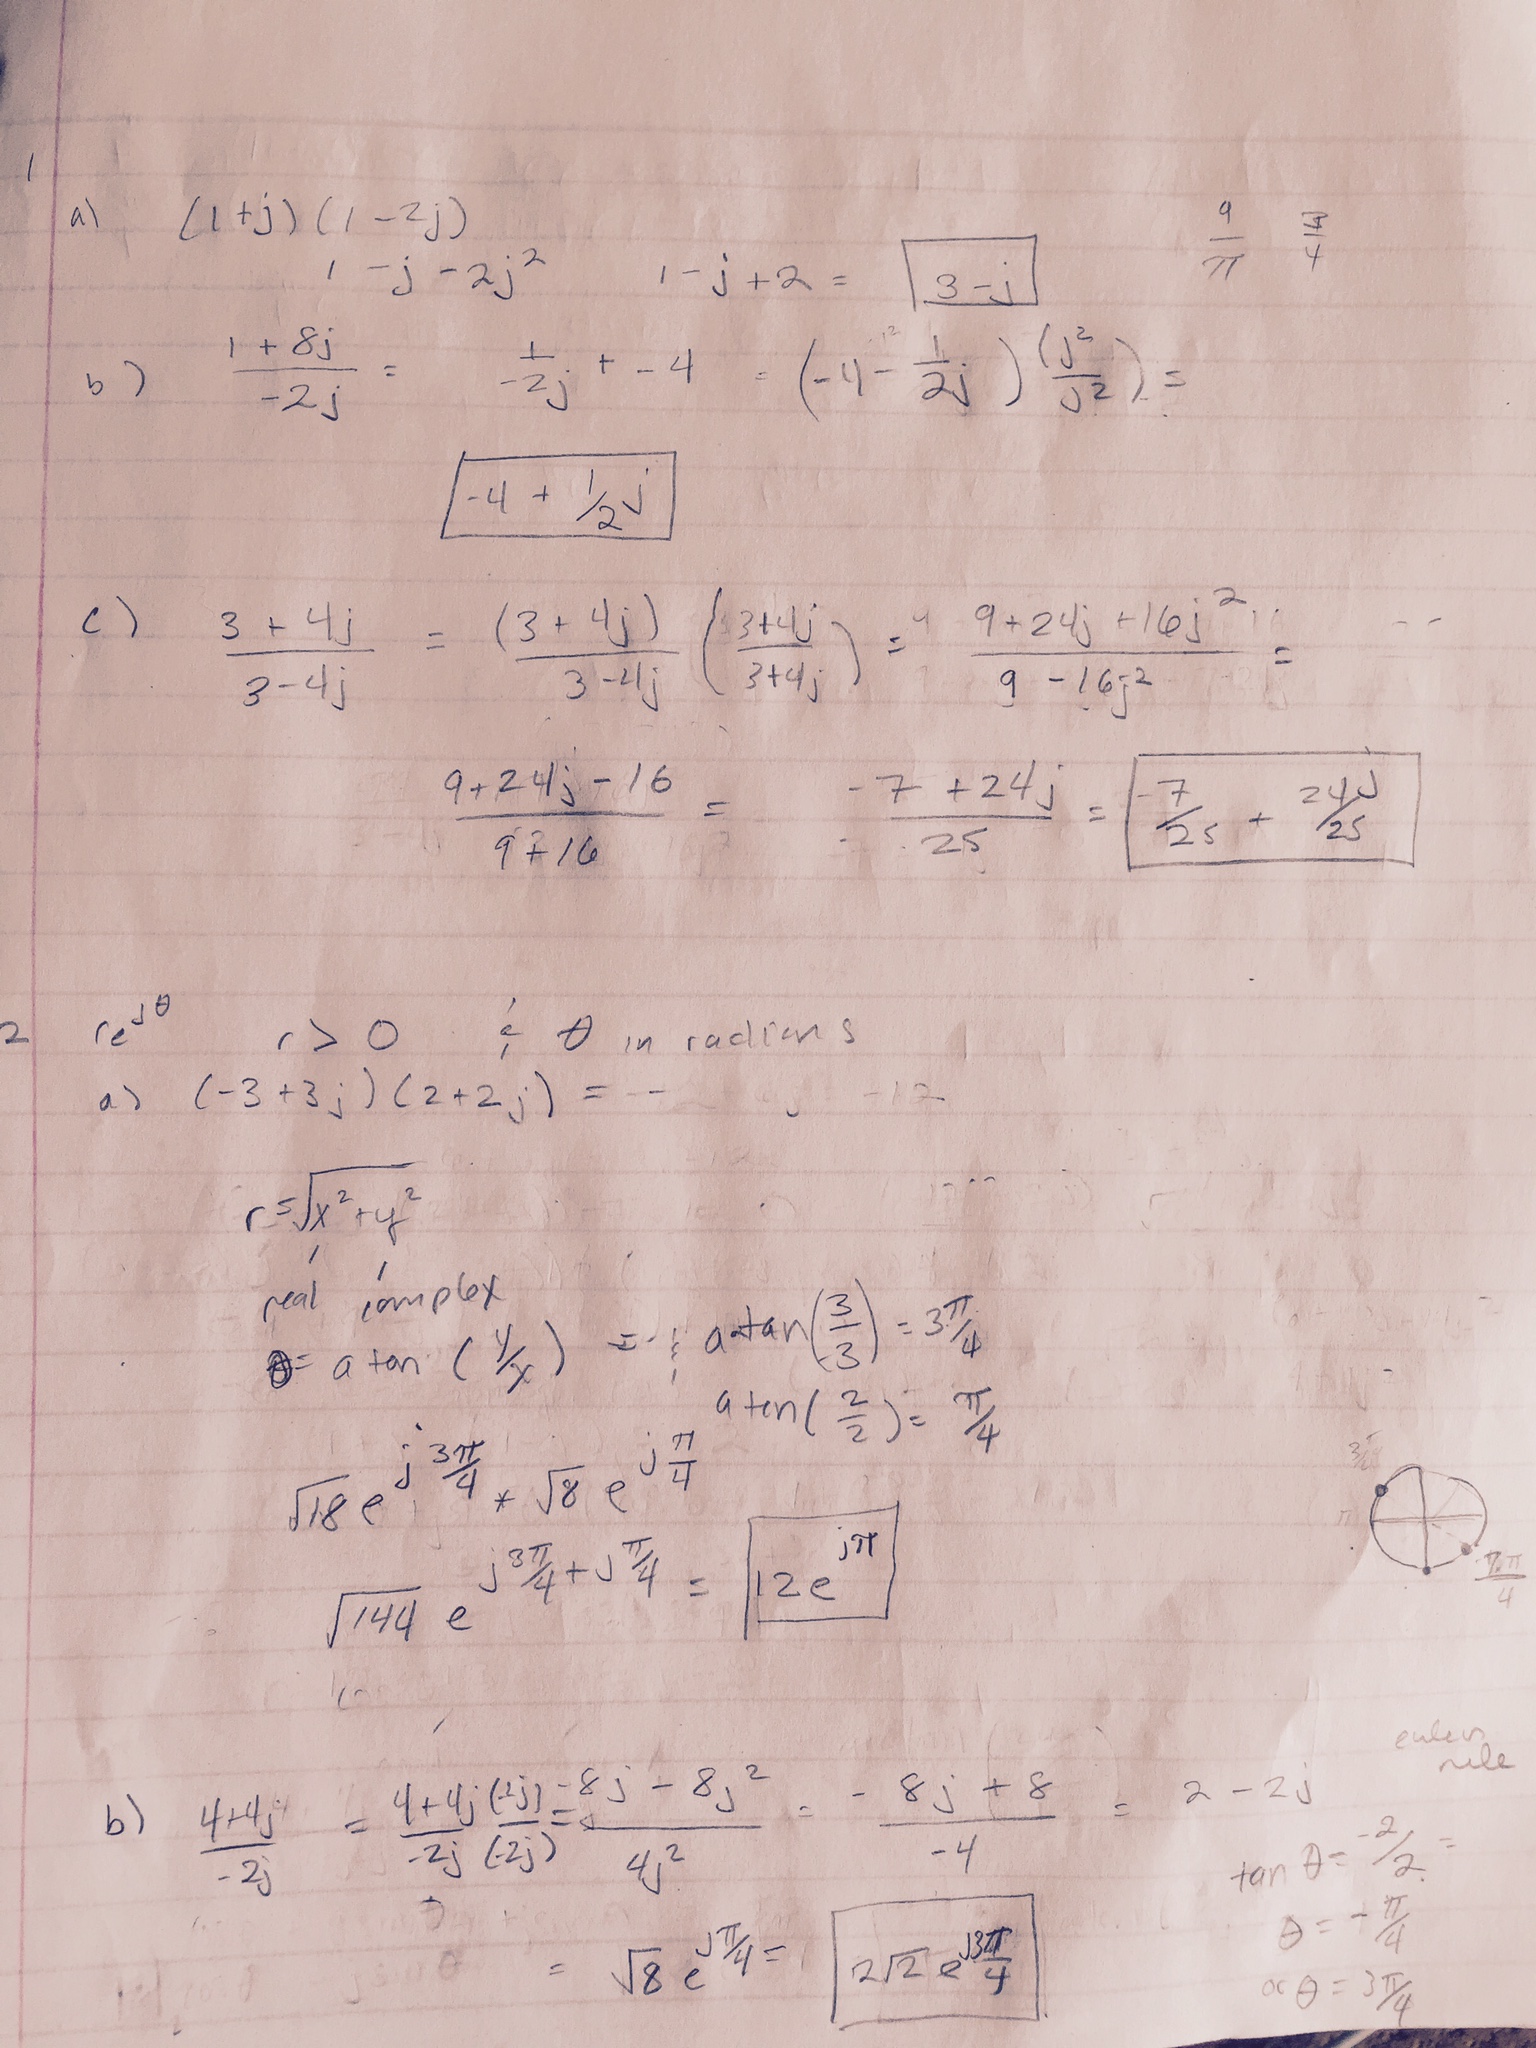 1
a) (1+j)(1-2j)
1 -j -2j²   1-j+2 = 3-j
9/π   π/4
b) (1+8j)/(-2j) = 1/(-2j) + -4 = (-4 - 1/2j)(j²/j²) =
-4 + 1/2 j
c) (3+4j)/(3-4j) = (3+4j)/(3-4j) ((3+4j)/(3+4j)) = (9+24j+16j²)/(9-16j²) =
(9+24j-16)/(9+16) = (-7+24j)/25 = -7/25 + 24j/25
2 re^jθ   r > 0   & θ in radians
a) (-3+3j)(2+2j) =   -12
r=√(x²+y²)
real complex
θ= atan (y/x) = atan(3/-3) = 3π/4
atan(2/2) = π/4
√18 e^(j 3π/4) * √8 e^(j π/4)
√144 e^(j 3π/4 + j π/4) = 12e^(jπ)
eulers
rule
b) (4+4j)/(-2j) = (4+4j)/(-2j) (-2j)/(-2j) = (-8j-8j²)/(4j²) = (-8j+8)/(-4) = 2-2j
tan θ = -2/2 =
θ = -π/4
or θ = 3π/4
= √8 e^(jπ/4) = 2√2 e^(j3π/4)